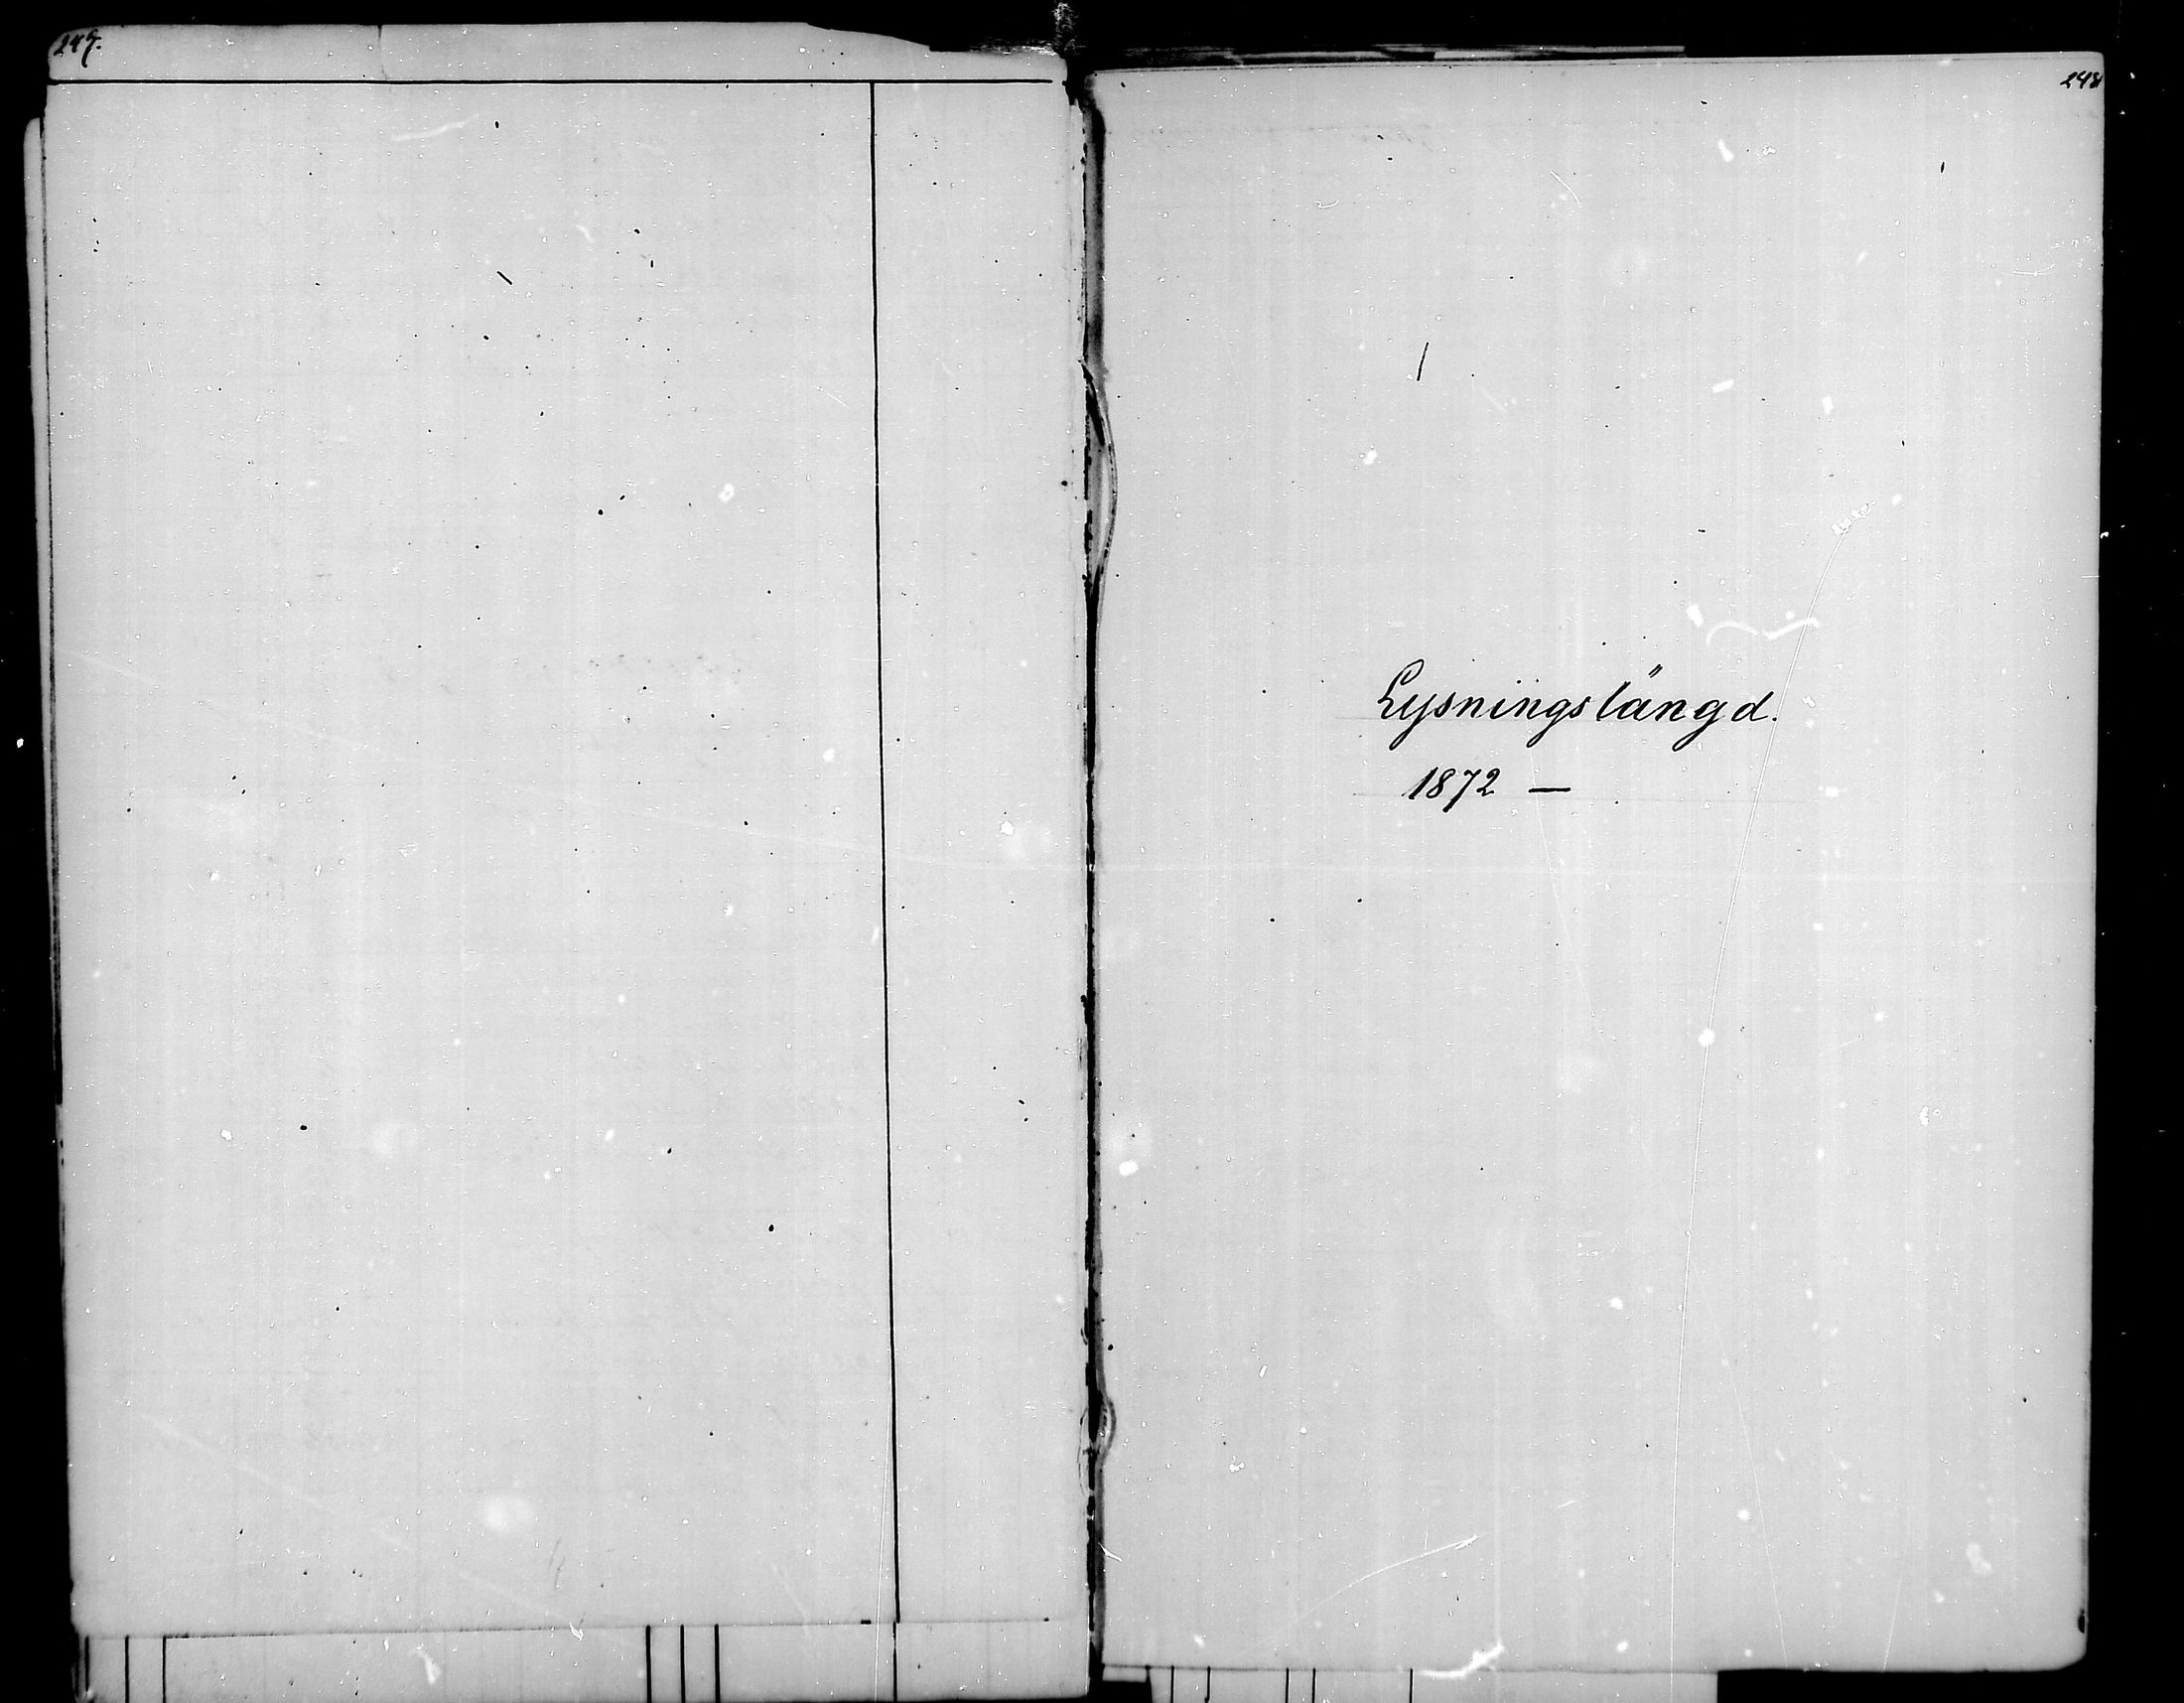 247.
248
Lysningslängd.
1872 —